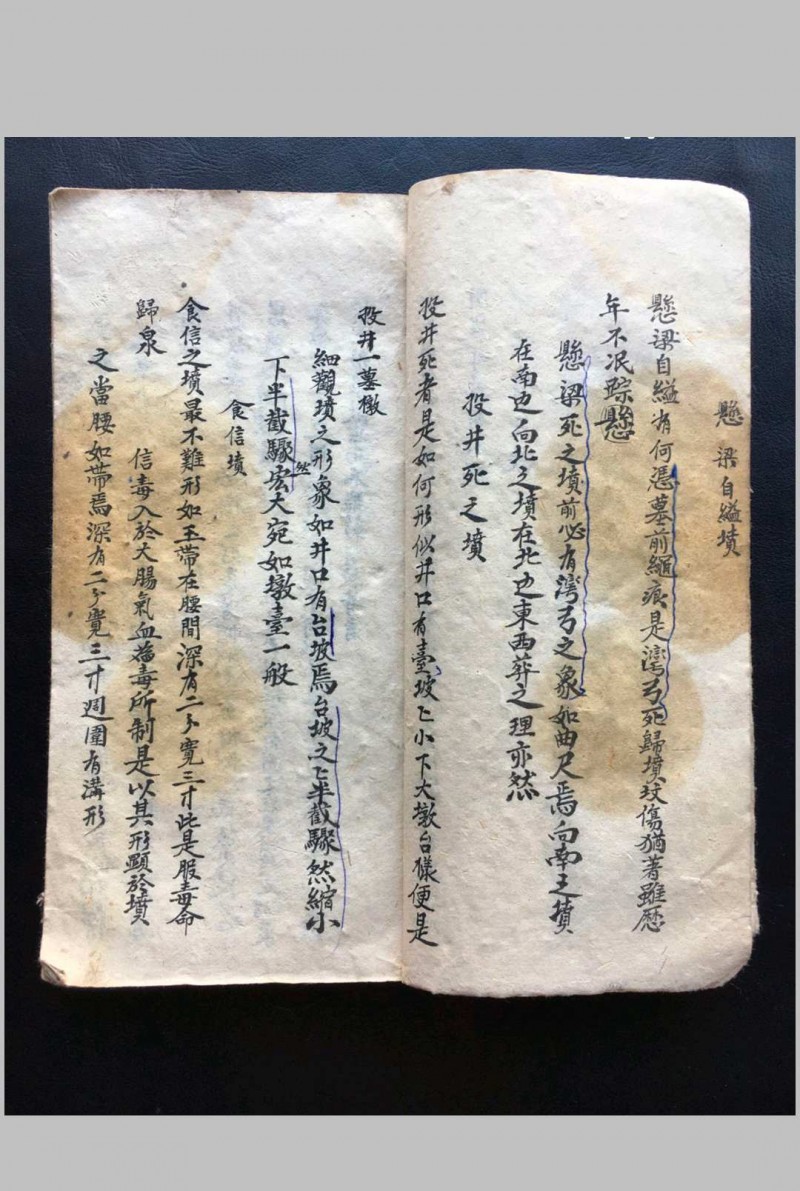 懸梁自縊墳
懸梁自縊有何憑墓前繩痕是灣弓死歸墳坟傷猶著雖歷
年不泯踪懸
懸梁死之墳前必有灣弓之象如曲尺焉向南之墳
在南边向北之墳在北边東西葬之理亦然
投井死之墳
投井死者是如何形似井口有臺坡上小下大墩台樣便是
投井一墓墩
細觀墳之形象如井口有台坡焉台坡之上半截驟然縮小
下半截驟然宏大宛如墩臺一般
食信墳
食信之墳最不難形如玉帶在腰間深有二分寬三寸此是服毒命
歸泉
信毒入於大腸氣血為毒所制是以其形顯於墳
之當腰如帶焉深有二分寬三寸週圍有溝形